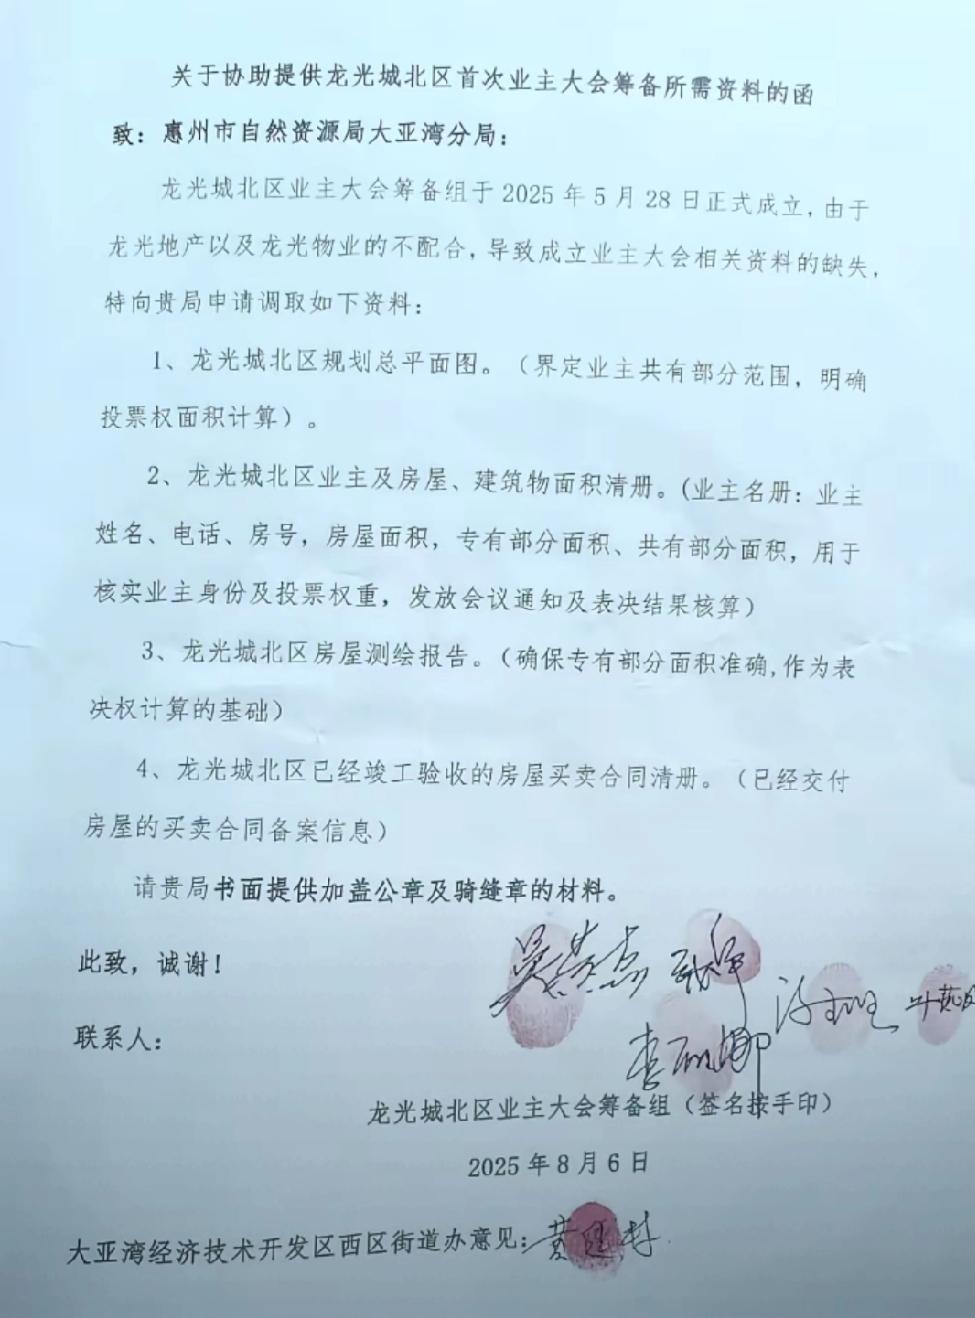 关于协助提供龙光城北区首次业主大会筹备所需资料的函
致：惠州市自然资源局大亚湾分局：
龙光城北区业主大会筹备组于 2025 年 5 月 28 日正式成立，由于
龙光地产以及龙光物业的不配合，导致成立业主大会相关资料的缺失，
特向贵局申请调取如下资料：
1、龙光城北区规划总平面图。（界定业主共有部分范围，明确
投票权面积计算）。
2、龙光城北区业主及房屋、建筑物面积清册。(业主名册：业主
姓名、电话、房号，房屋面积，专有部分面积、共有部分面积，用于
核实业主身份及投票权重，发放会议通知及表决结果核算）
3、龙光城北区房屋测绘报告。（确保专有部分面积准确,作为表
决权计算的基础）
4、龙光城北区已经竣工验收的房屋买卖合同清册。（已经交付
房屋的买卖合同备案信息）
请贵局书面提供加盖公章及骑缝章的材料。
此致，诚谢！
联系人：
李丽娜
龙光城北区业主大会筹备组（签名按手印）
2025 年 8 月 6 日
大亚湾经济技术开发区西区街道办意见：